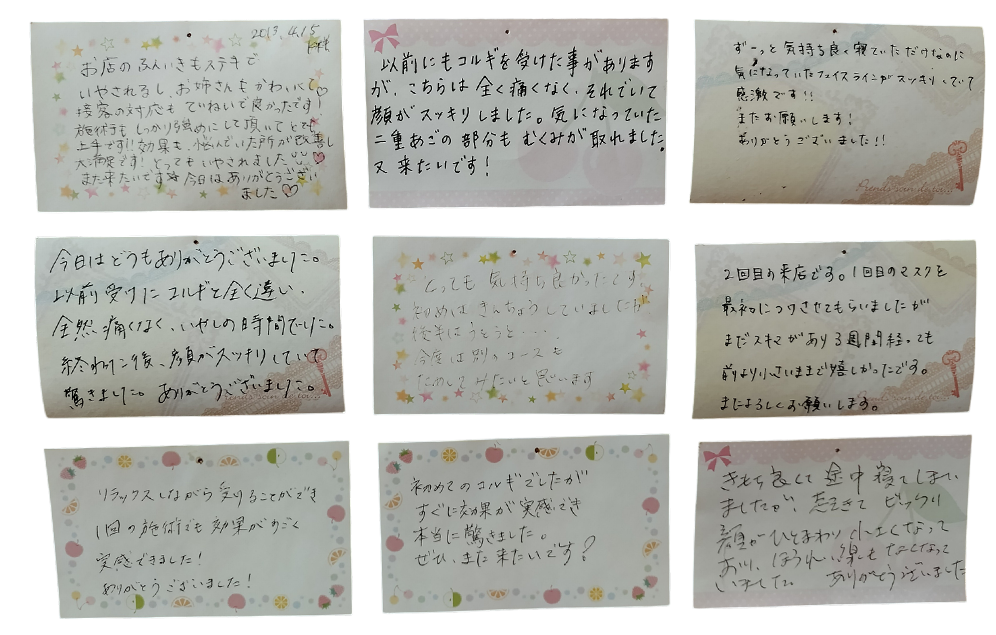 2013.4.15
お店のふんいきもステキで
いやされるし、お姉さんもかわいいし
接客の対応もていねいで良かったです!
施術も しっかり強めにして頂いてとても
上手です!効果も、悩んでいた所が改善し
大満足です!とってもいやされました
また来たいです☆今日はありがとうござい
ました♡
以前にもコルギを受けた事があります
が、こちらは全く痛くなく、それでいて
顔がスッキリしました。気になっていた
二重あごの部分も むくみが取れました。
又 来たいです!
ずーっと気持ち良く寝ていただけなのに
気になっていたフェイスラインがスッキリしていて
感激です!!
またお願いします!
ありがとうございました!!
Prends soin de
今日はどうもありがとうございました。
以前受けたコルギと全く違い、
全然痛くなく、いやしの時間でした。
終わった後、顔がスッキリしていて
驚きました。ありがとうございました。
とっても 気持ち良かったです。
初めは きんちょうしていましたが
後半はうとうと・・・
今度は別のコースも
ためしてみたいと思います
2回目の来店です。1回目のマスクを
最初につけさせてもらいましたが
まだスキマがあり3週間経っても
前より小さいままで嬉しかったです。
またよろしくお願いします。
リラックスしながら受けることができ
1回の施術でも効果がすごく
実感できました!
ありがとうございました!
初めてのコルギでしたが
すぐに効果が実感でき
本当に驚きました。
ぜひ、また来たいです!
きもち良くて途中寝てしまい
ましたが、起きてビックリ
顔がひとまわり小さくなって
おり、ほうれい線もなくなって
いました。 ありがとうございました